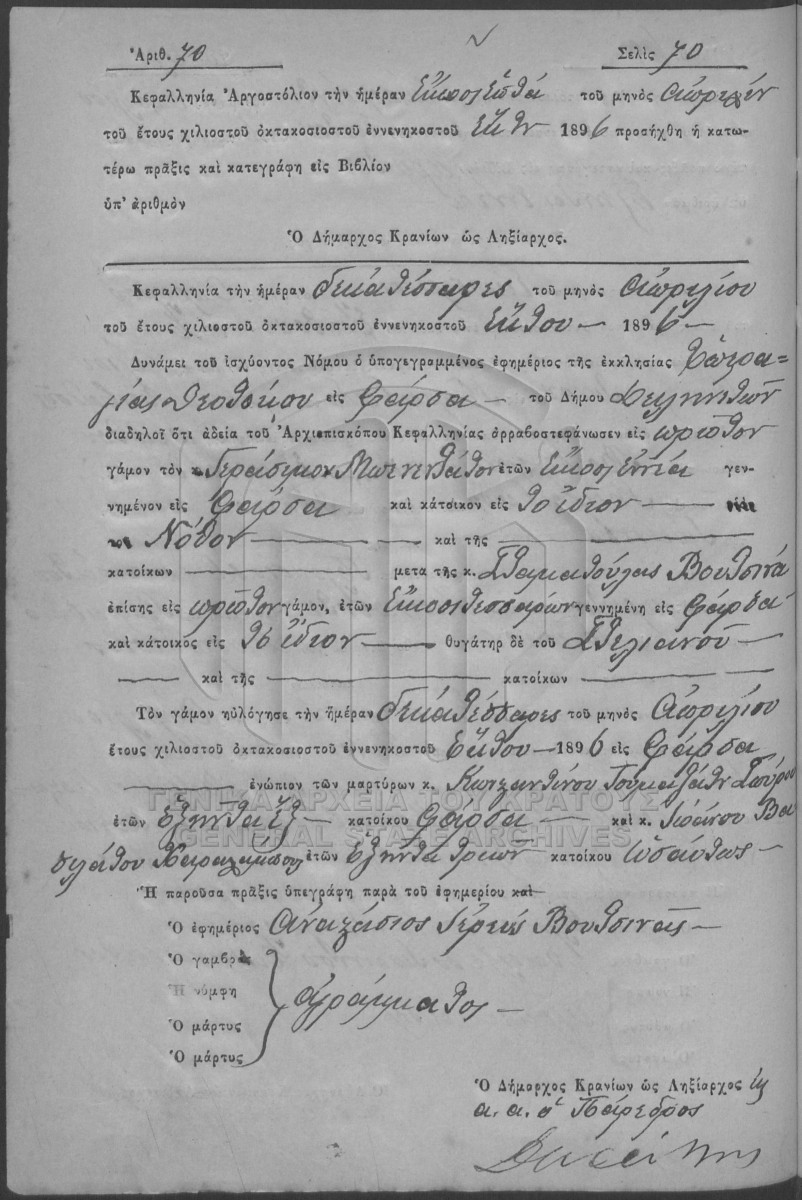 Ἀριθ. 70 Σελὶς 70
Κεφαλληνία Ἀργοστόλιον τὴν ἡμέραν Εἴκοσι Ἑπτά τοῦ μηνὸς
τοῦ ἔτους χιλιοστοῦ ὀκτακοσιοστοῦ ἐννενηκοστοῦ 1896 προσήχθη ἡ κατω-
τέρω πρᾶξις καὶ κατεγράφη εἰς Βιβλίον
ὑπ' ἀριθμὸν
Ὁ Δήμαρχος Κρανίων ὡς Ληξίαρχος.
Κεφαλληνία τὴν ἡμέραν δεκατέσσαρες τοῦ μηνὸς Ἀπριλίου
τοῦ ἔτους χιλιοστοῦ ὀκτακοσιοστοῦ ἐννενηκοστοῦ Ἕκτου — 1896 —
Δυνάμει τοῦ ἰσχύοντος Νόμου ὁ ὑπογεγραμμένος ἐφημέριος τῆς ἐκκλησίας Ὑπερα=
γίας Θεοτόκου εἰς Φάρσα — τοῦ Δήμου
διαδηλοῖ ὅτι ἀδεία τοῦ Ἀρχιεπισκόπου Κεφαλληνίας ὀρραβοστεφάνωσεν εἰς πρῶτον
γάμον τὸν κ. Γεράσιμον ἐτῶν Εἴκοσι Ἐννία γεν-
νημένον εἰς Φάρσα καὶ κάτοικον εἰς τὸ ἴδιον —
Νόθον — καὶ τῆς —
κατοίκων — μετα τῆς κ. Σταματούλας Βουτσινᾶ
ἐπίσης εἰς πρῶτον γάμον, ἐτῶν Εἴκοσι τεσσάρων γεννημένη εἰς Φάρσα
καὶ κάτοικος εἰς τὸ ἴδιον — θυγάτηρ δὲ τοῦ Στελιανοῦ —
— καὶ τῆς — κατοίκων —
Τὸν γάμον ηὐλόγησε τὴν ἡμέραν δεκατέσσαρες τοῦ μηνὸς Ἀπριλίου
ἔτους χιλιοστοῦ ὀκτακοσιοστοῦ ἐννενηκοστοῦ Ἕκτου — 1896 εἰς Φάρσα
— ἐνώπιον τῶν μαρτύρων κ. Κωνσταντίνου Σπύρου
ἐτῶν Ἑξῆντα ἕξ — κατοίκου Φάρσα — καὶ κ. Ἰωάνου Βα
σιλάτου Χαραλάμπου ἐτῶν Ἑξῆντα τριῶν κατοίκου ὡσαύτως —
Ἡ παροῦσα πρᾶξις ὑπεγράφη παρὰ τοῦ ἐφημερίου καὶ
Ὁ ἐφημέριος Ἀναστάσιος Ἱερεύς Βουτσινᾶς —
Ὁ γαμβρὸς
Ἡ νύμφη
ἀγράμματος —
Ὁ μάρτυς
Ὁ μάρτυς
Ὁ Δήμαρχος Κρανίων ὡς Ληξίαρχος
α. α. ὁ Πάρεδρος
ΓΕΝΙΚΑ ΑΡΧΕΙΑ ΤΟΥ ΚΡΑΤΟΥΣ
GENERAL STATE ARCHIVES